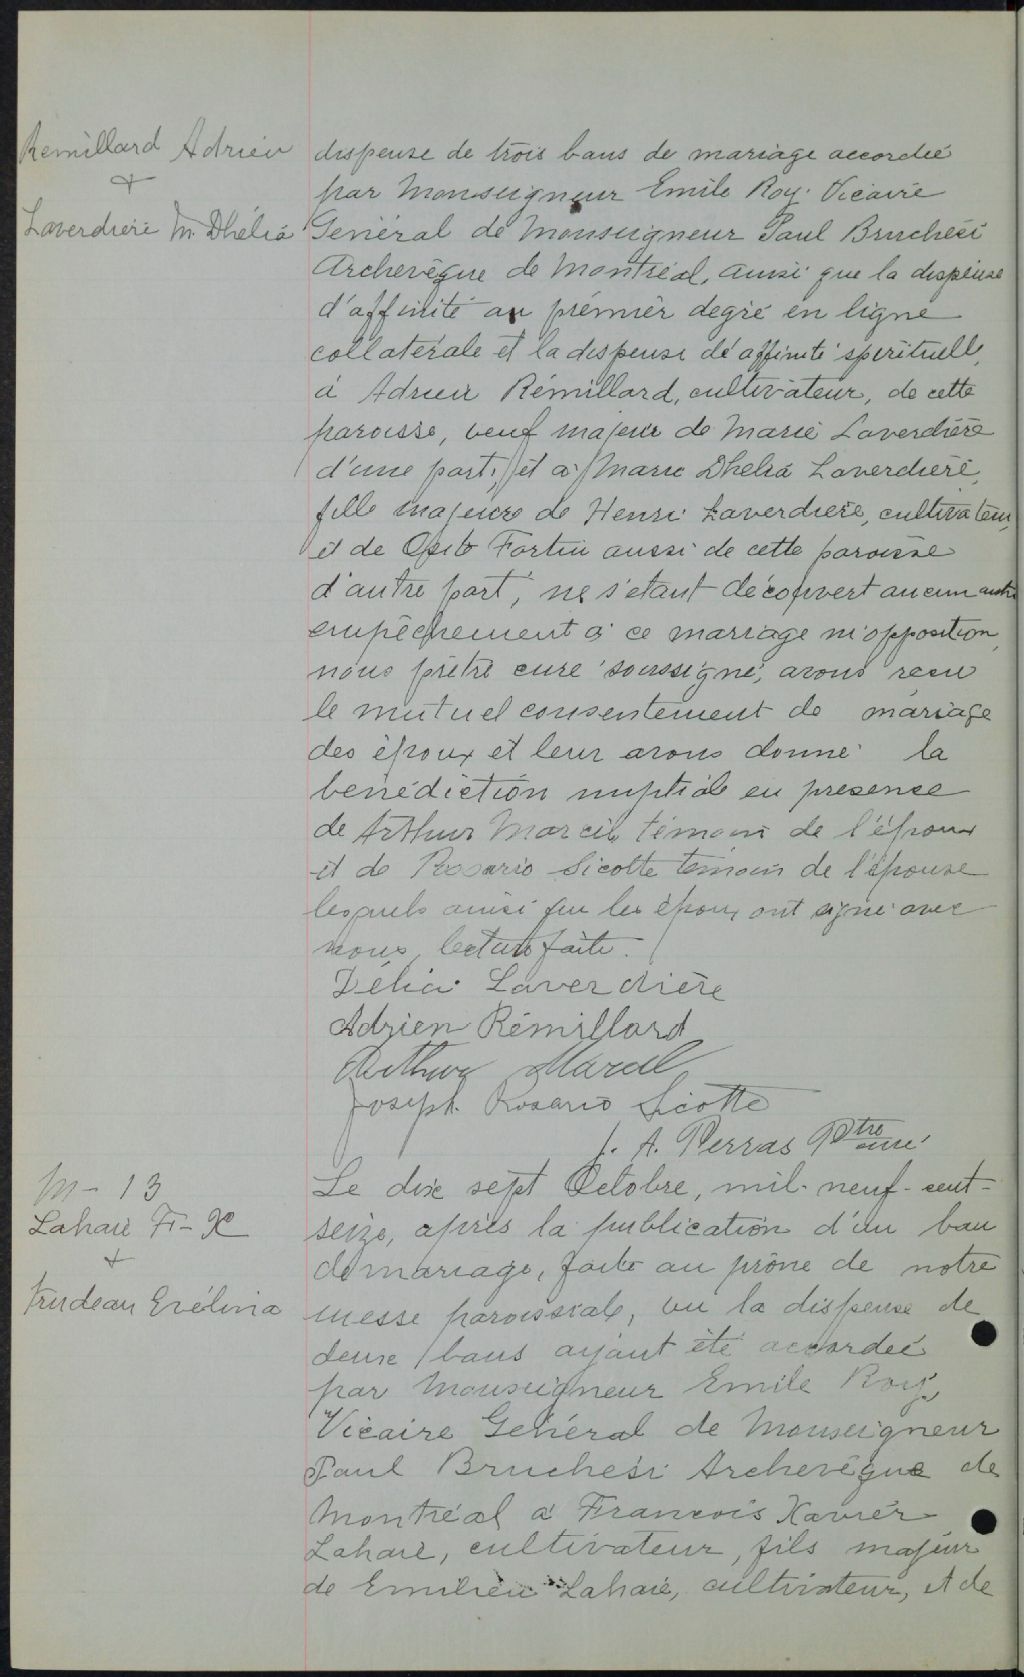 Remillard Adrien
+
Laverdière M. Dhélia
dispense de trois bans de mariage accordée
par Monseigneur Emile Roy Vicaire
Général de Monseigneur Paul Bruchési
Archevêque de Montréal, ainsi que la dispense
d'affinité au prémièr degré en ligne
collatérale et la dispense d'affinité spirituelle,
à Adrien Rémillard, cultivateur, de cette
paroisse, veuf majeur de Marie Laverdière
d'une part; et à Marie Dhelia Laverdière,
fille majeure de Henri Laverdière, cultivateur,
et de Fortin aussi de cette paroisse
d'autre part, ne s'étant découvert aucun autre
empêchement à ce mariage ni opposition,
nous prêtre curé soussigné, avons reçu
le mutuel consentement de mariage
des époux et leur avons donné la
bénédiction nuptiale en présence
de Arthur Marcil, témoin de l'époux
et de Rosario Sicotte témoin de l'épouse
lesquels ainsi que les époux ont signé avec
nous, lecture faite.
Délia Laverdière
Adrien Rémillard
Arthur Marcil
Joseph Rosario Sicotte
J. A. Perras Ptre curé
M - 13
Lahaie F - X
+
Trudeau Evélina
Le dix sept Octobre, mil-neuf-cent-
seize, après la publication d'un ban
de mariage, faite au prône de notre
messe paroissiale, vu la dispense de
deux bans ayant été accordée
par Monseigneur Emile Roy,
Vicaire Général de Monseigneur
Paul Bruchési Archevêque de
Montréal à François Xavier
Lahaie, cultivateur, fils majeur
de Emilien Lahaie, cultivateur, et de